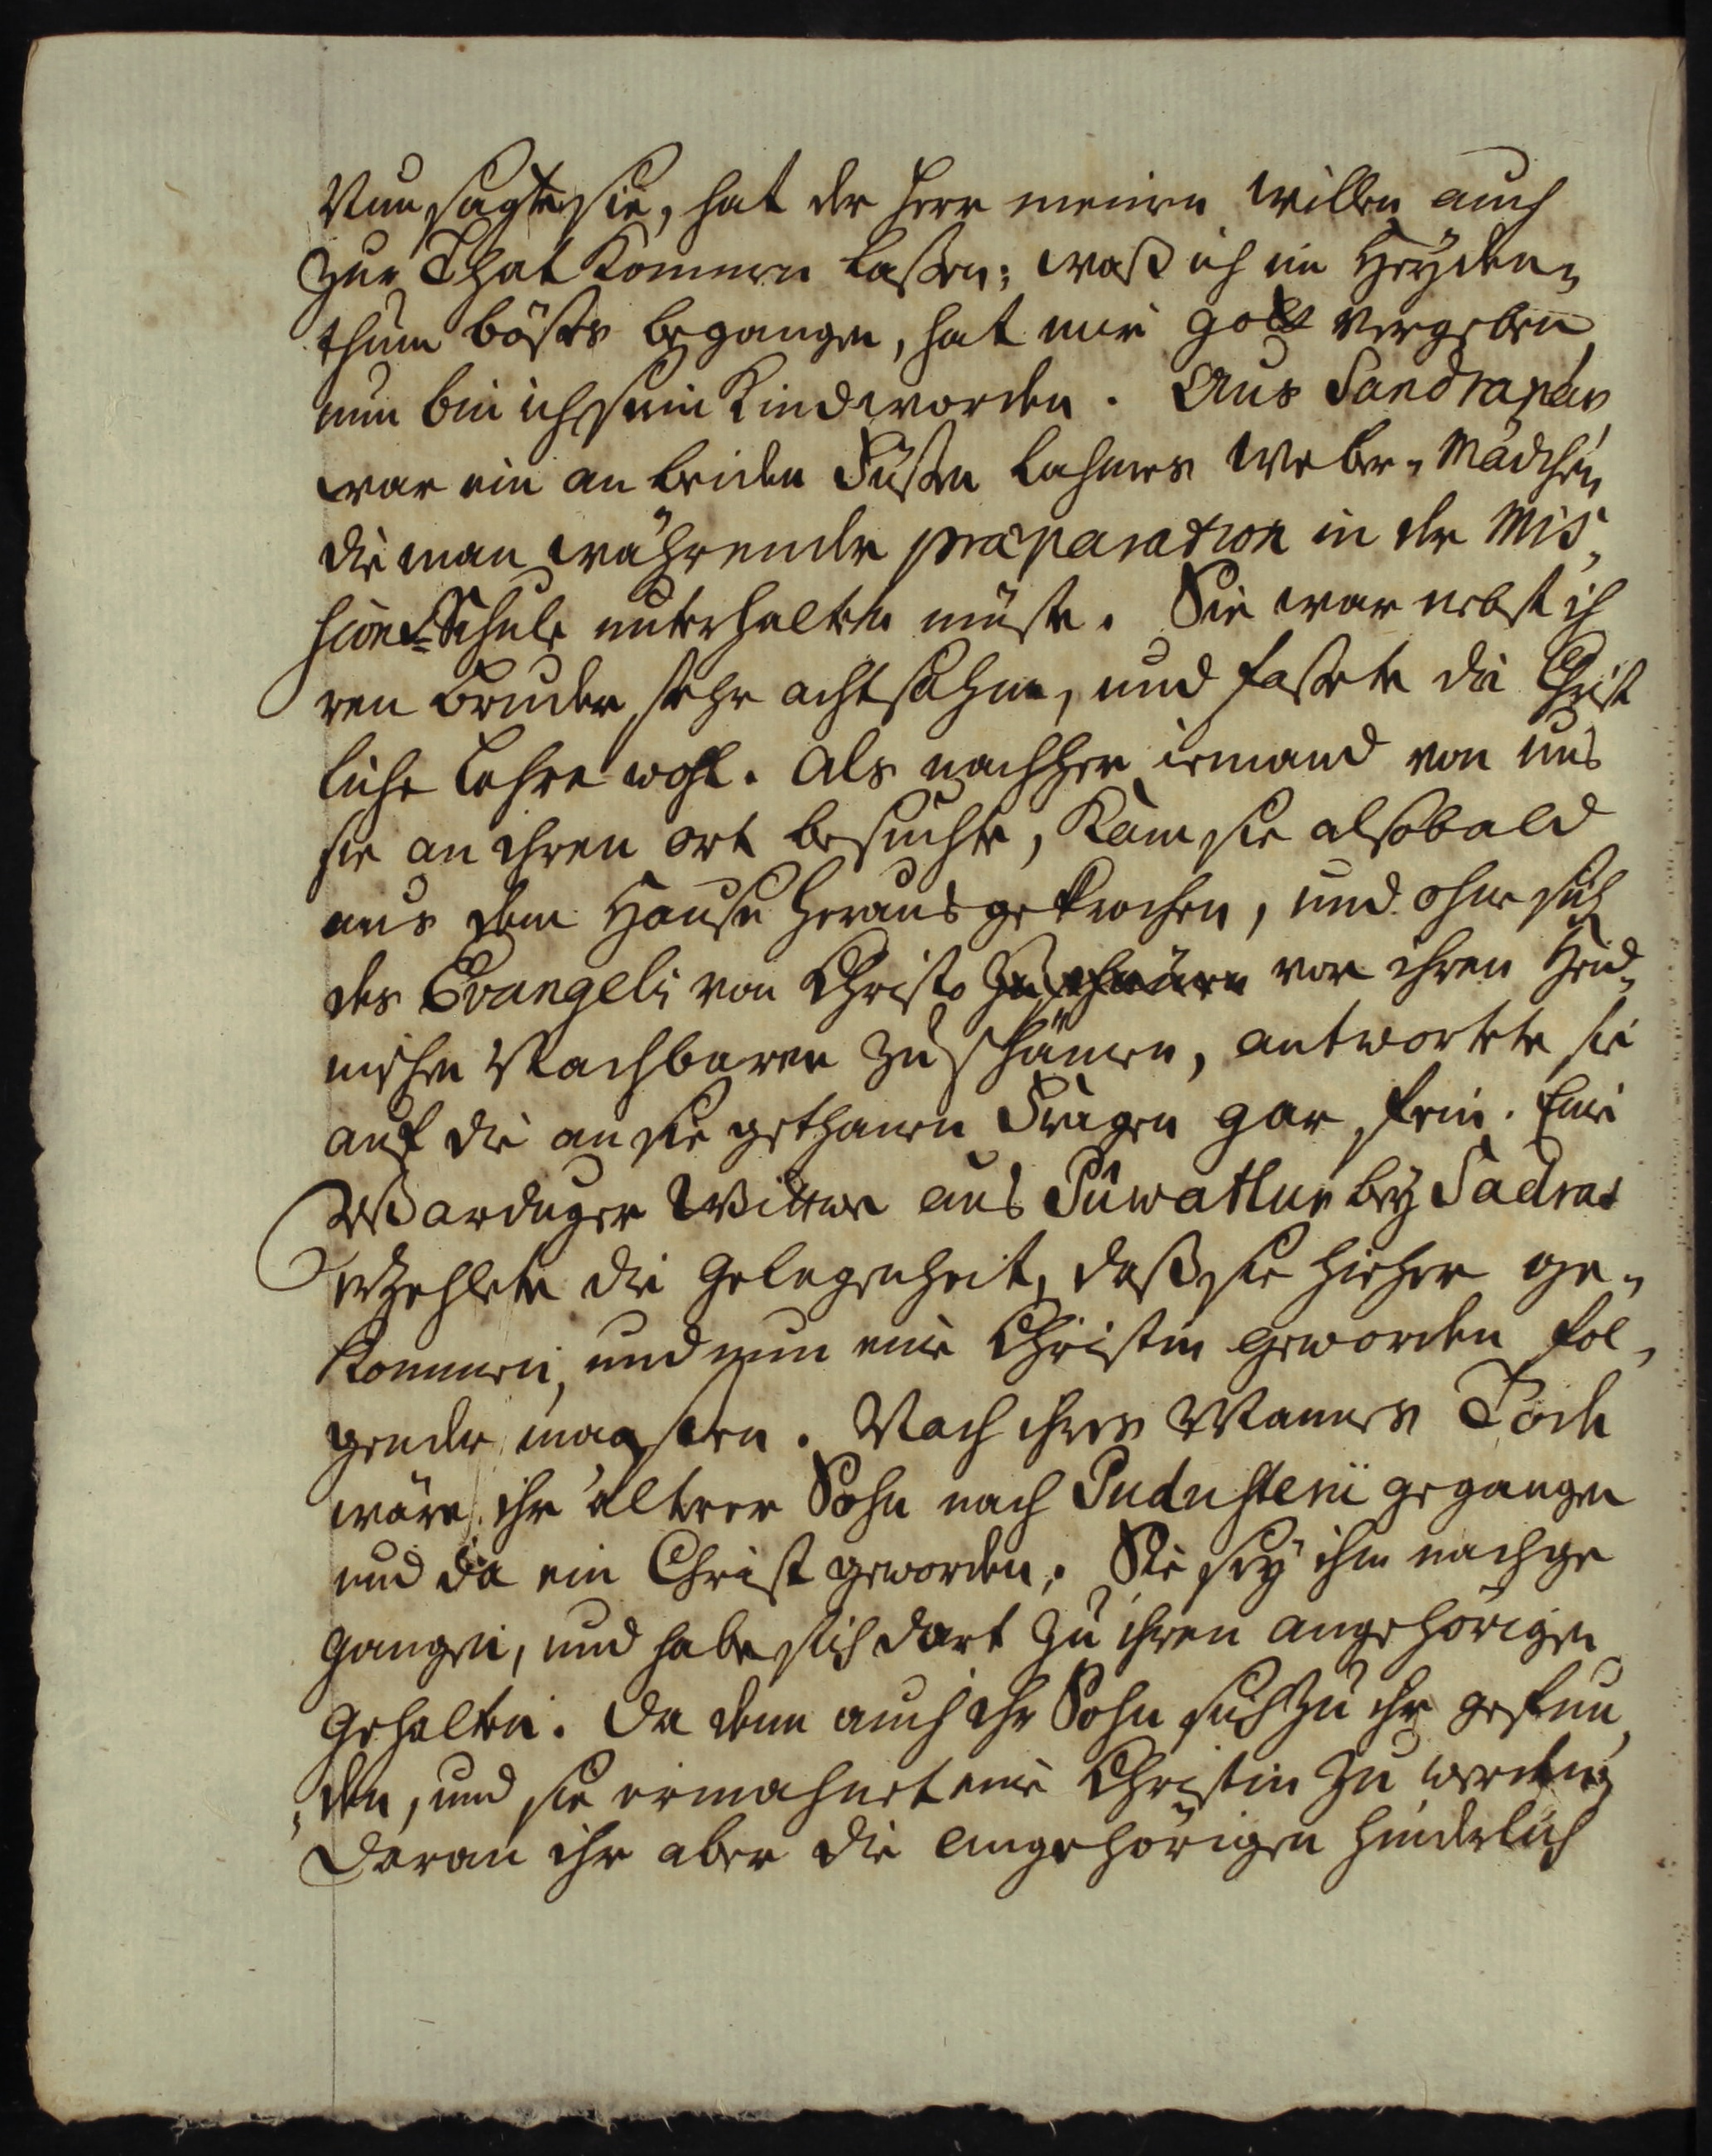 Nun sagte sie, hat der Herr meinen willen auch
zur That kommen laßen: waß ich im Heyden„
thum böses begangen, hat mir Gott vergeben,
nun bin ich sein Kind worden. Aus Sandrapádi
war ein an beiden Füßen lahmes Weber„Mädchen,
die man währender praeparation in der Mis„
sions-Schule unterhalten muste. Sie war nebst ih
ren Bruder sehr achtsahm, und faßete die Christ
liche Lehre wohl. Als nachher iemand von uns
sie an ihren ort besuchte, kam sie alsobald
aus dem Hause herausgekrochen, und ohne sich
des Evangelii von Christo vor ihren Heid„
nischen Nachbaren zu schämen, antwortete sie
auf die an sie gethanen Fragen gar fein. Eine
Warduger Wittwe aus Púwattur bey Sadras
erzehlete die Gelegenheit, daß sie hieher ge„
kommen, und nun eine Christin geworden fol„
gender maaßen. Nach ihres Mannes Tode
wäre ihr ältrer Sohn nach Pudutscheri gegangen
und da ein Christ geworden. Sie sey ihm nachge
gangen, und habe sich dort zu ihren angehörigen
gehalten. Da denn auch ihr Sohn sich zu ihr gefun„
„den, und sie ermahnet eine Christin zu werden,
daran ihr aber die angehörigen hinderlich